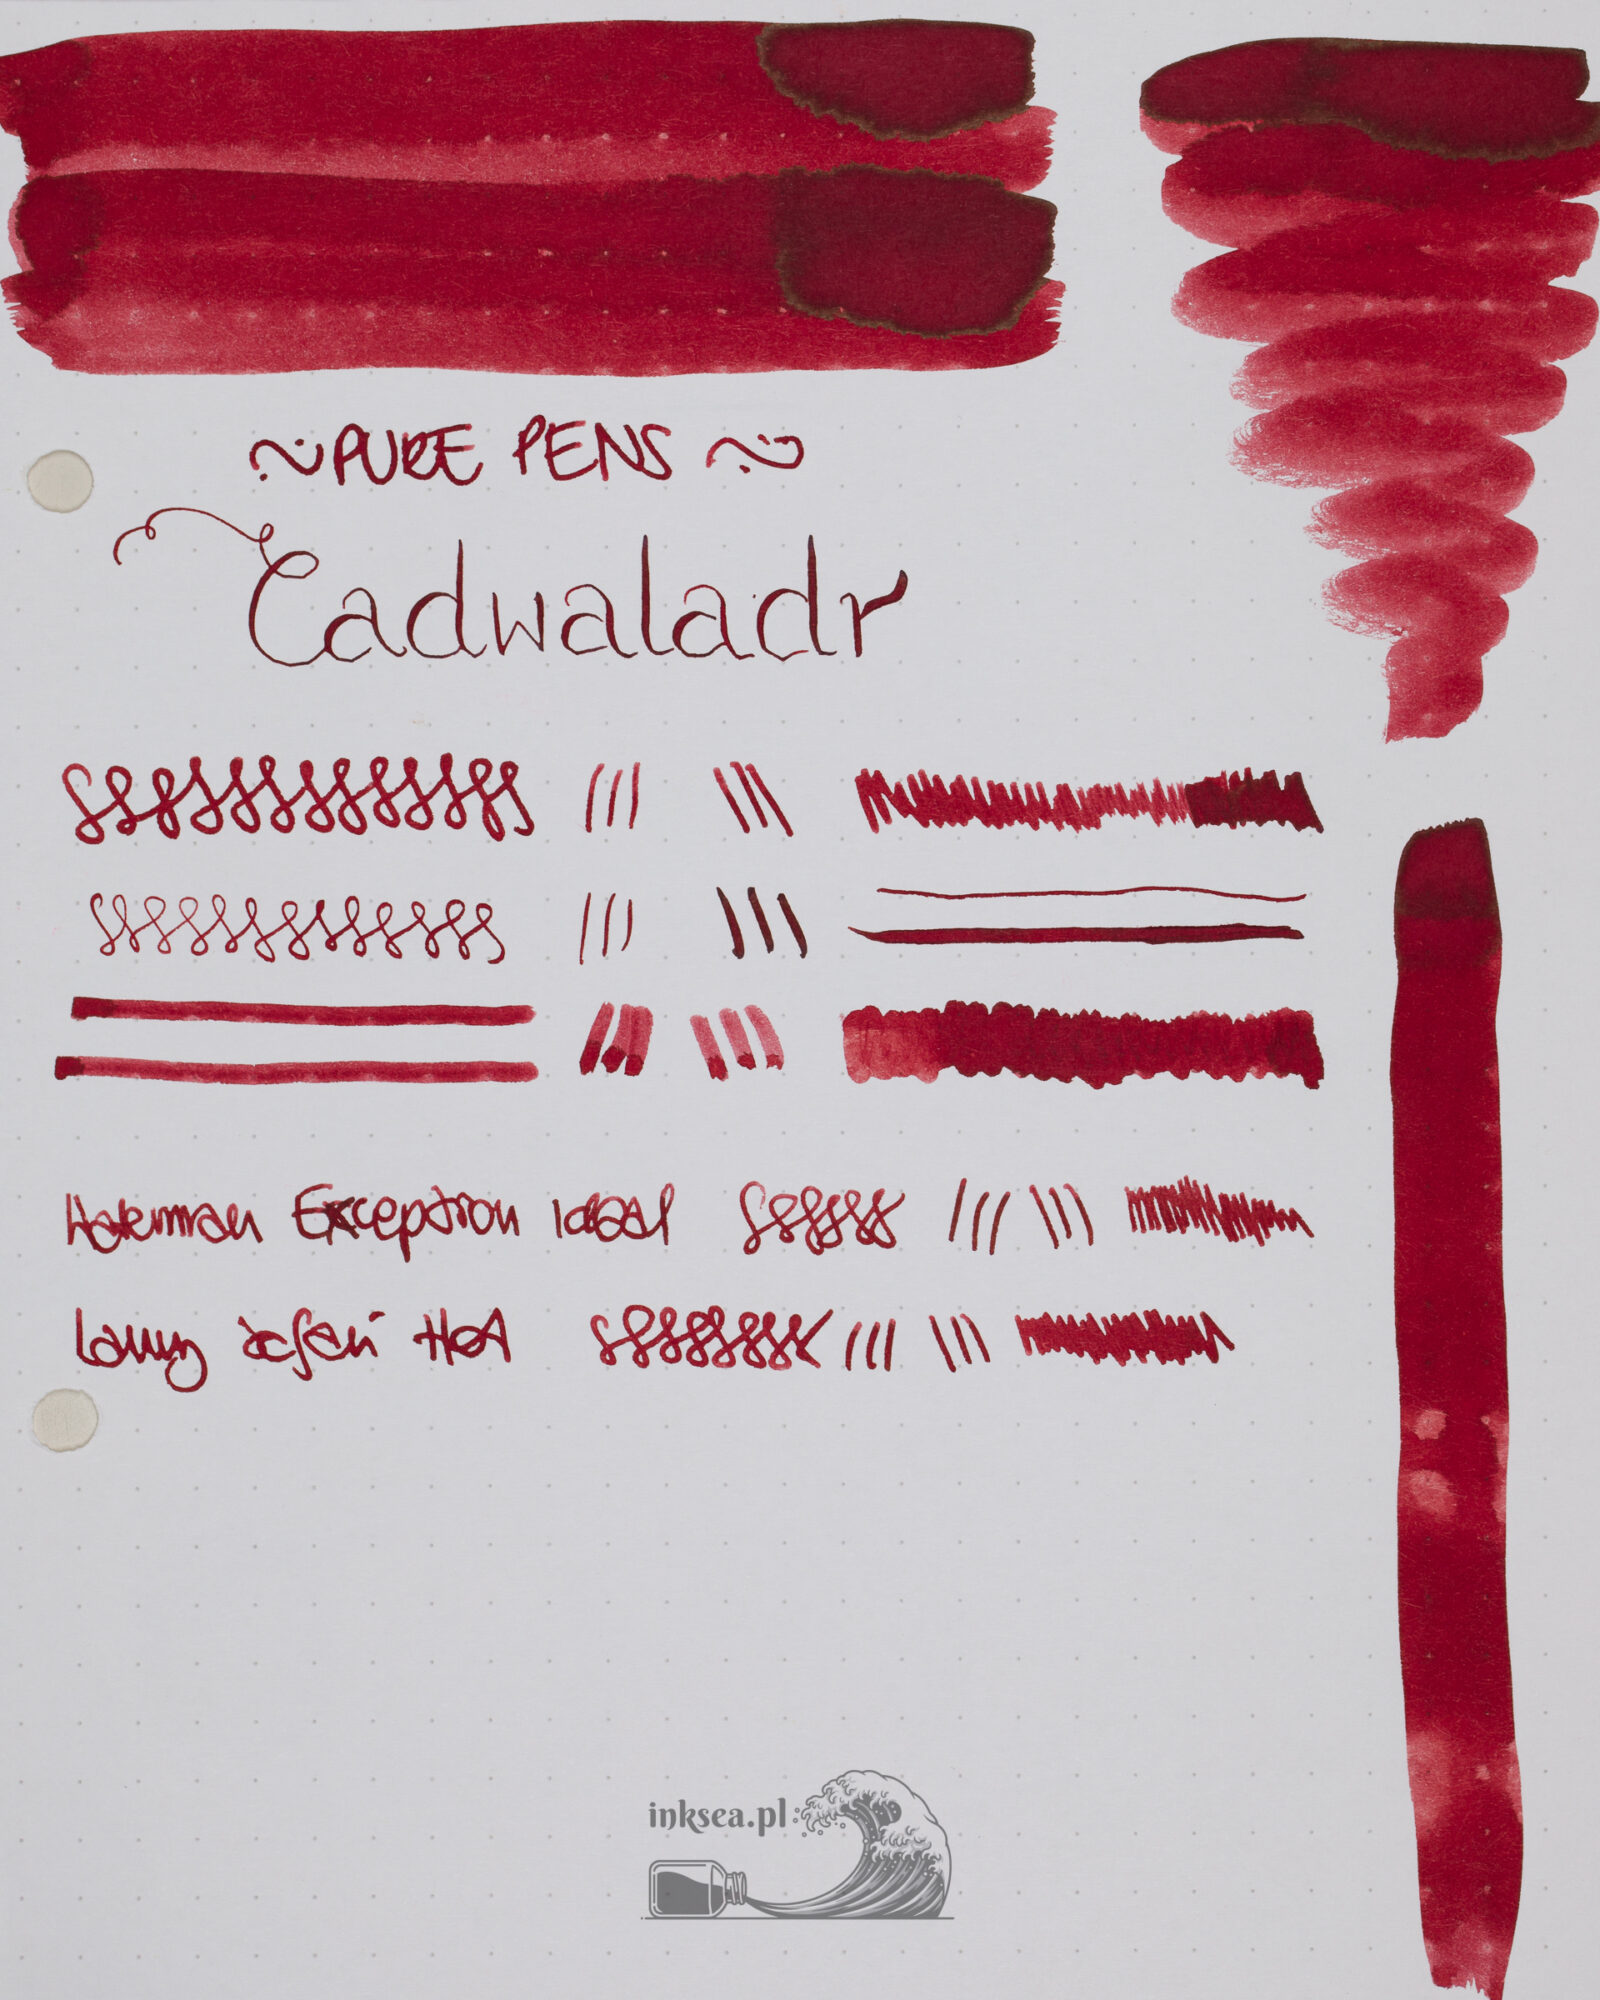 ~ PURE PENS ~
Cadwaladr
Waterman Exception Ideal
Lamy Safari
inksea.pl